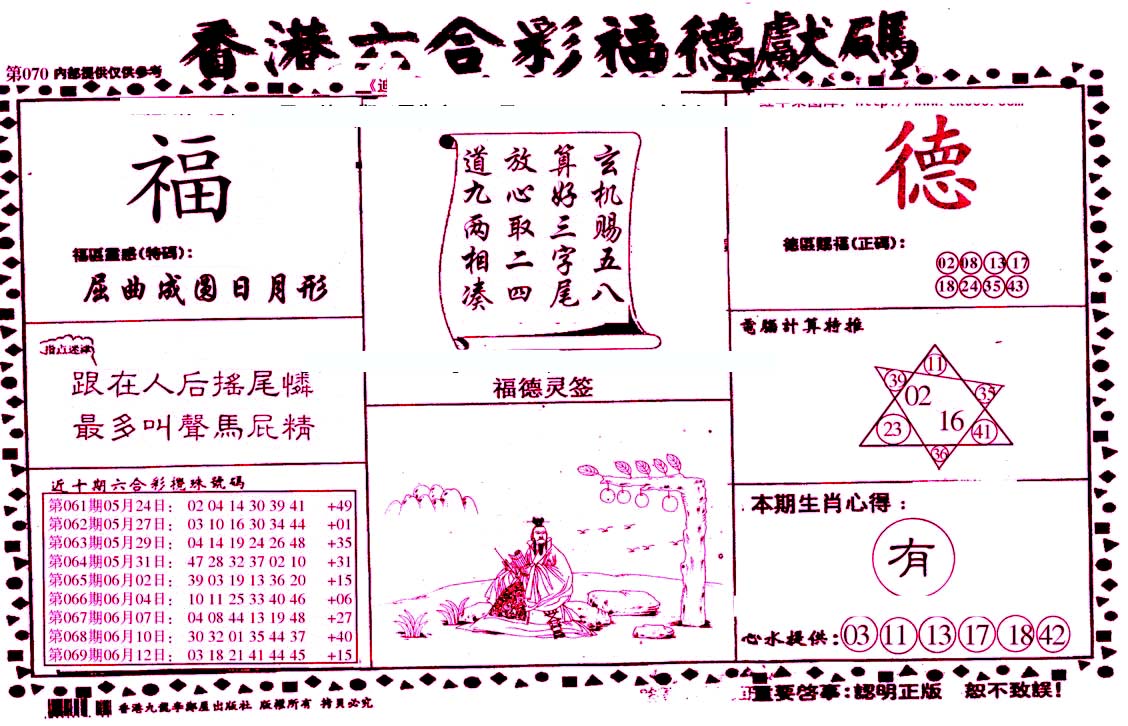 香港六合彩福德獻碼
第070 内部提供仅供参考
福
福區靈感(特碼):
屈曲成圆日月形
指点迷津
跟在人后搖尾憐
最多叫聲馬屁精
近十期六合彩攪珠號碼
第061期05月24日: 02 04 14 30 39 41 +49
第062期05月27日: 03 10 16 30 34 44 +01
第063期05月29日: 04 14 19 24 26 48 +35
第064期05月31日: 47 28 32 37 02 10 +31
第065期06月02日: 39 03 19 13 36 20 +15
第066期06月04日: 10 11 25 33 40 46 +06
第067期06月07日: 04 08 44 13 19 48 +27
第068期06月10日: 30 32 01 35 44 37 +40
第069期06月12日: 03 18 21 41 44 45 +15
玄机赐五八
算好三字尾
放心取二四
道九两相凑
福德灵签
德
德區賜福(正碼):
02 08 13 17
18 24 35 43
電腦計算特推
11
39 02 35
23 16 41
36
本期生肖心得:
有
心水提供: 03 11 13 17 18 42
香港九龍李鄭屋出版社 版權所有 拷貝必究
重要啓事:認明正版 恕不致誤!